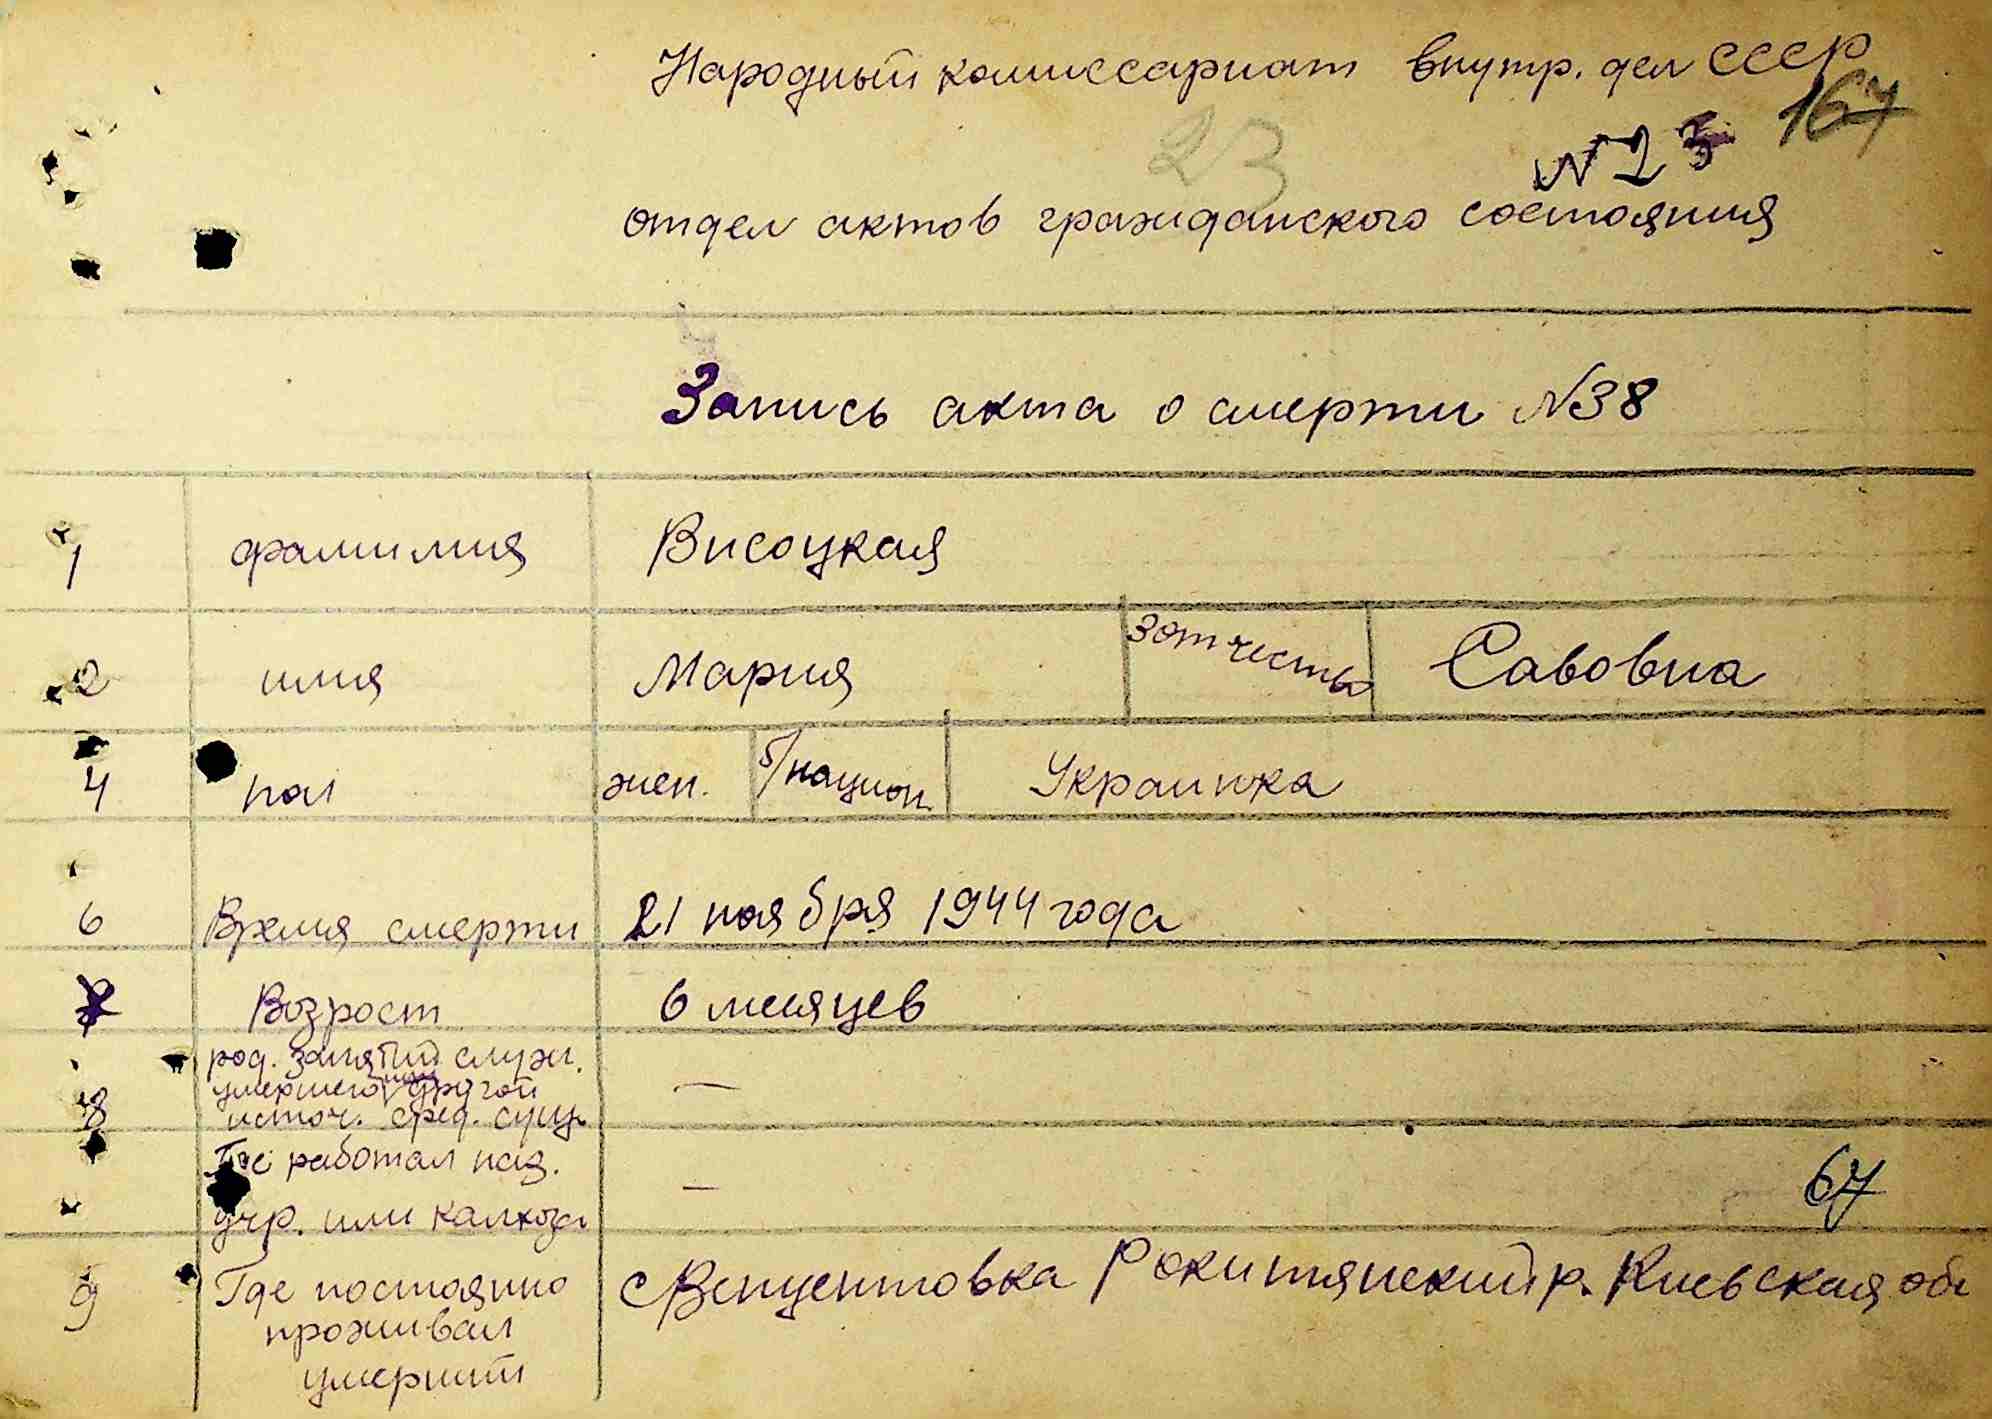 Народный комиссариат внутр. дел СССР
167
23
N 23
отдел актов гражданского состояния
Запись акта о смерти N38
1 фамилия Висоцкая
2 имия Мария 3 отчество Савовна
4 пол жен. 5/национ. Украинка
6 Время смерти 21 ноября 1944 года
7 Возрост 6 мисяцев
род. занятий служ.
умершего или другой —
8 источ. сред. сущ.
Где работал наз. —
67
учр. или калхоза
9 Где постаяно с Венцентовка Рокитянский р. Киевская обл
проживал
умерший